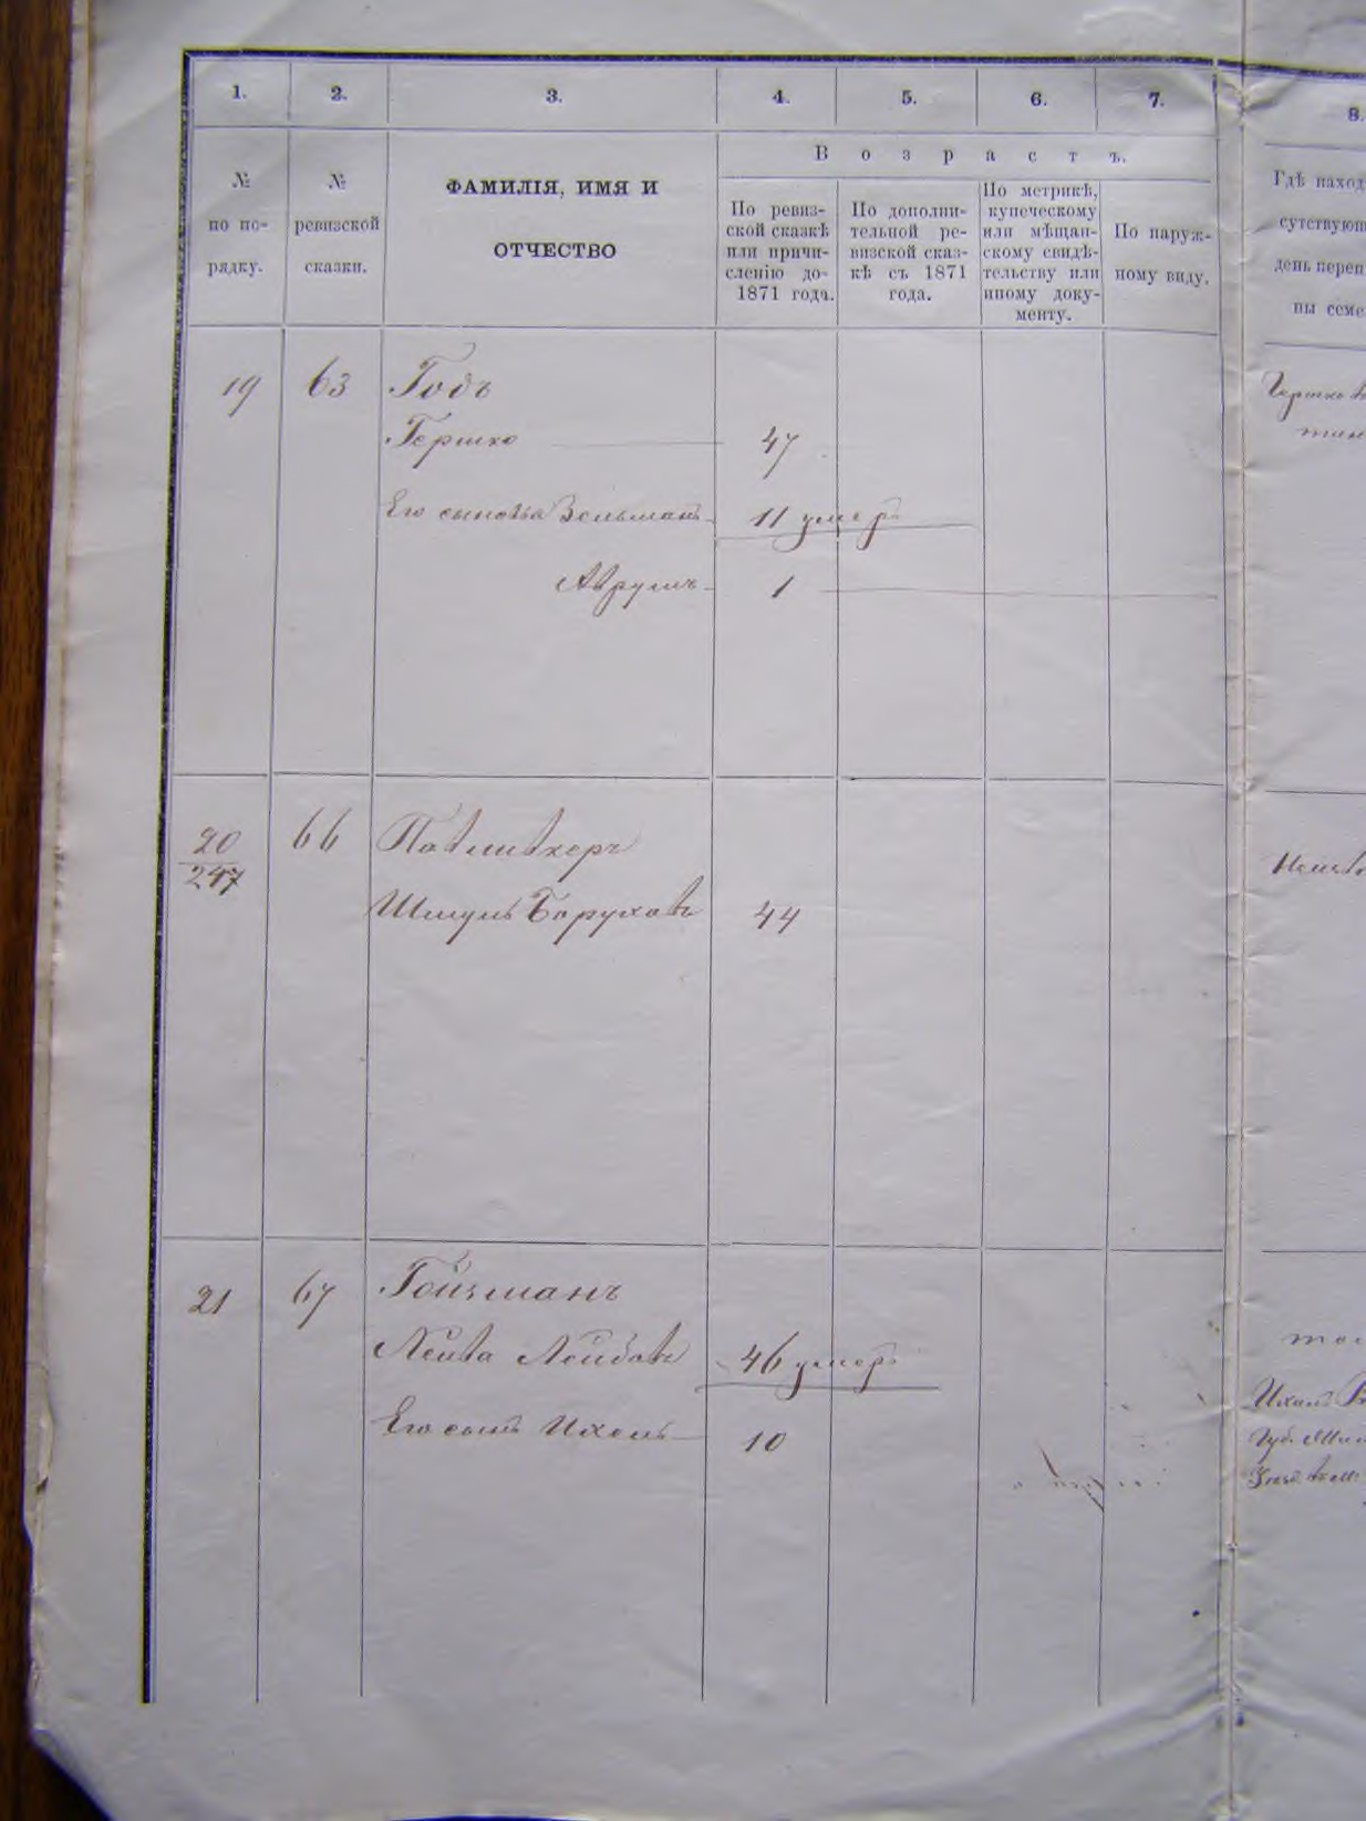 1.
2.
3.
4.
5.
6.
7.
8.
№
по по-
рядку.
№
ревизской
сказки.
ФАМИЛІЯ, ИМЯ И
ОТЧЕСТВО
Возрастъ.
По ревиз-
ской сказкѣ
или причи-
сленію до
1871 года.
По дополни-
тельной ре-
визской сказ-
кѣ съ 1871
года.
По метрикѣ,
купеческому
или мѣщан-
скому свидѣ-
тельству или
иному доку-
менту.
По наруж-
ному виду.
Гдѣ наход
сутствующ
день переп
ны семе
19 63 Годъ
Гершко 47
Его сыновья Зельманъ 11 умеръ
Аврумъ 1
20 66
247
Шмуль Боруховъ 44
21 67 Гойзманъ
Лейва Лейбовъ 46 умеръ
Его сынъ Ихель 10